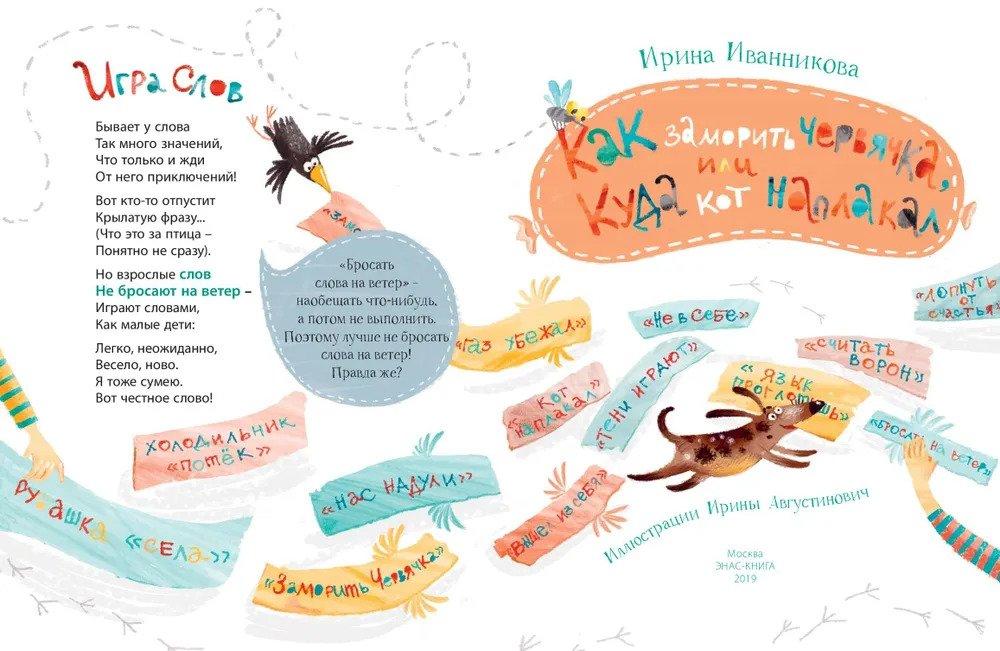 Игра слов
Бывает у слова
Так много значений,
Что только и жди
От него приключений!
Вот кто-то отпустит
Крылатую фразу...
(Что это за птица –
Понятно не сразу).
Но взрослые слов
Не бросают на ветер –
Играют словами,
Как малые дети:
Легко, неожиданно,
Весело, ново.
Я тоже сумею.
Вот честное слово!
«Бросать
слова на ветер» –
наобещать что-нибудь,
а потом не выполнить.
Поэтому лучше не бросать
слова на ветер!
Правда же?
рубашка «села»
холодильник
«потёк»
«нас надули»
«Заморить червячка»
Ирина Иванникова
Как заморить червячка,
или
Куда кот наплакал
«газ убежал»
«не в себе»
«лопнуть
от
счастья»
кот
«наплакал»
«тени играют»
«считать
ворон»
«язык
проглотишь»
«бросать на ветер»
«вышел из себя»
Иллюстрации Ирины Августинович
Москва
ЭНАС-КНИГА
2019